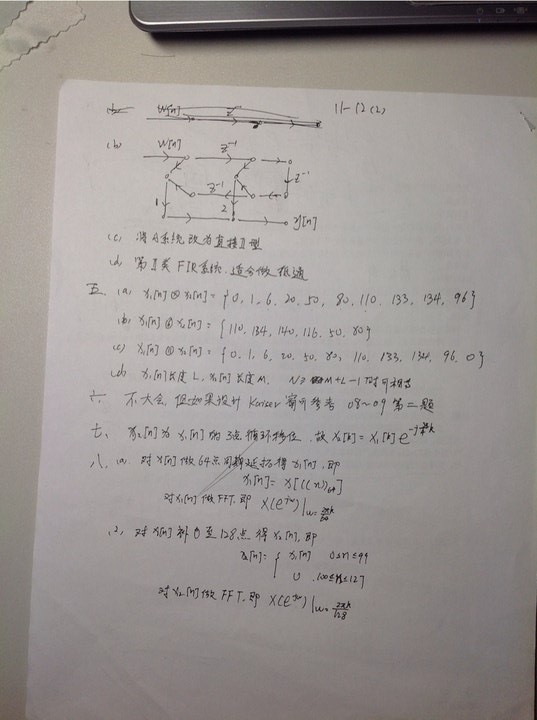 11-12(2)
(b) W[n] z⁻¹
W[n] z⁻¹
z⁻¹
z⁻¹
1 2 y[n]
(c) 将A系统改为直接II型
(d) 第II类FIR系统,适合做低通
五、(a) x₁[n]⊗x₂[n] = {0, 1, 6, 20, 50, 80, 110, 133, 134, 96}
(b) x₁[n]⊗x₂[n] = {110, 134, 140, 116, 50, 80}
(c) x₁[n]⊗x₂[n] = {0, 1, 6, 20, 50, 80, 110, 133, 134, 96, 0}
(d) x₁[n]长度L, x₂[n]长度M, N≥M+L-1时可相等
六、不大会,但如果设计Kaiser窗可参考 08~09 第二题
七、x₂[n]为x₁[n]的3点循环移位,故X₂[k]=X₁[k]e
八、(1) 对x[n]做64点周期延拓得x₁[n],即
x₁[n]=x[((n))₆₄]
对x₁[n]做FFT,即 X(e^{jω})|
(2) 对x[n]补0至128点得x₂[n],即
x₂[n]= { x₁[n] 0≤n≤99
0 100≤n≤127
对x₂[n]做FFT,即 X(e^{jω})|ω=2πk/128